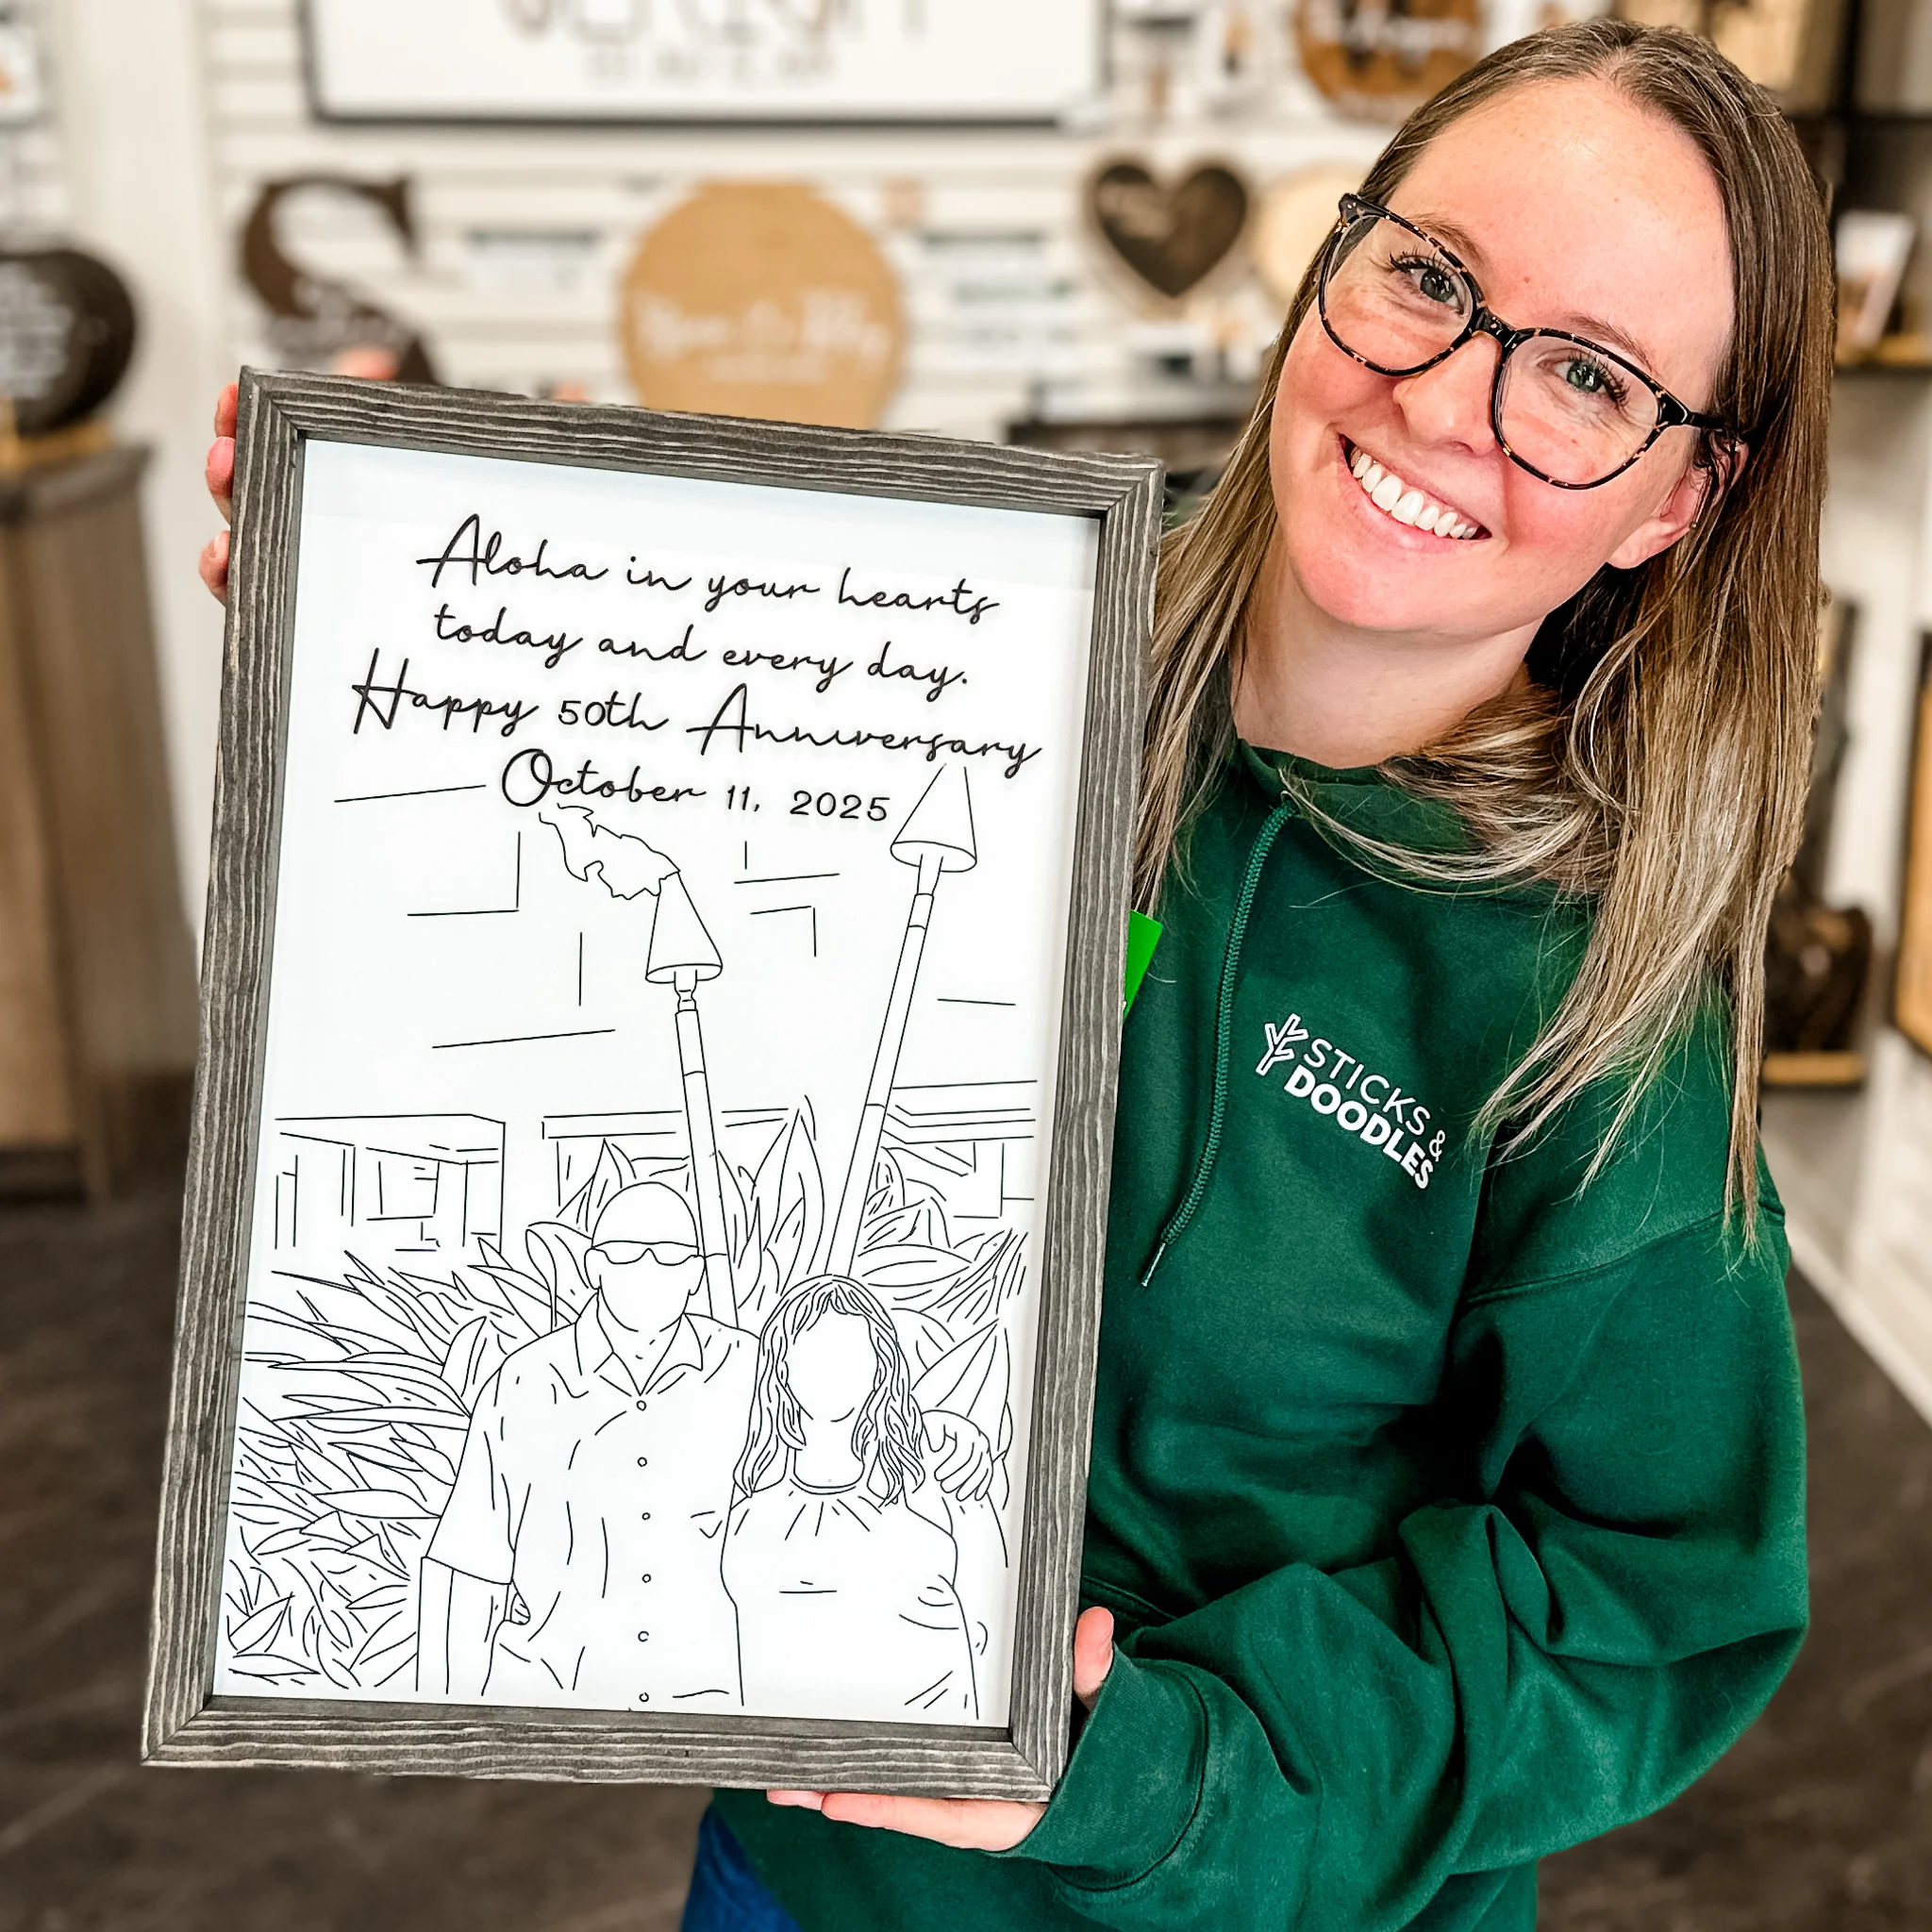 Aloha in your hearts
today and every day.
Happy 50th Anniversary
October 11, 2025
STICKS &
DOODLES